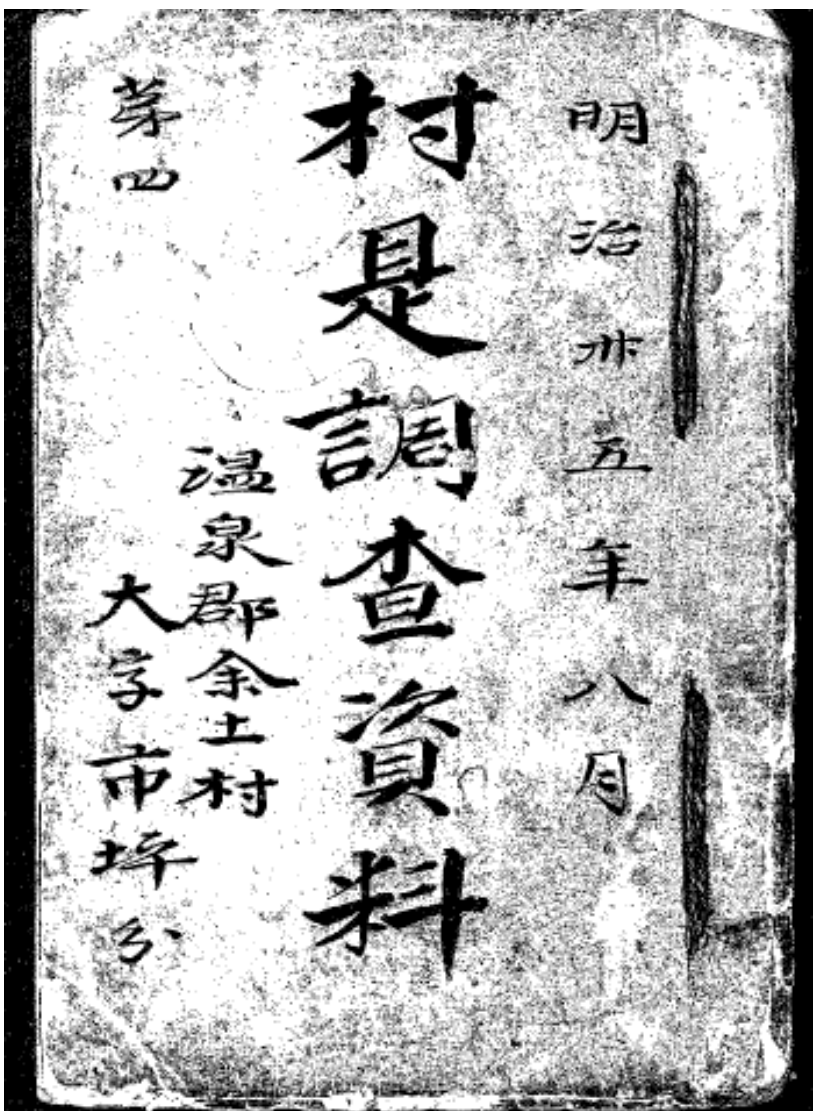 明治卅五年八月
村是調査資料
温泉郡余土村
大字市坪分
第四